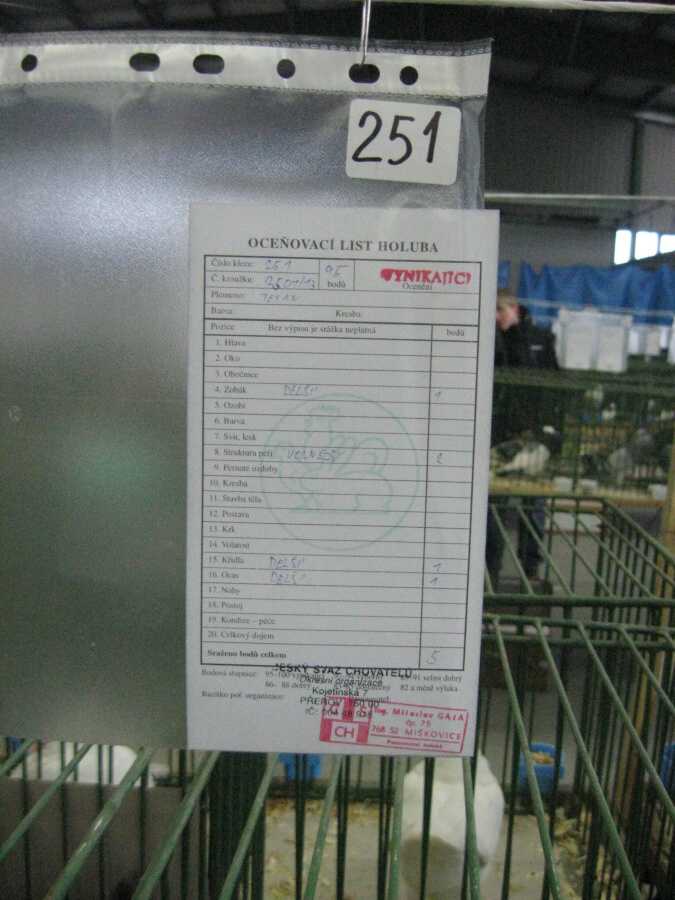 251
OCEŇOVACÍ LIST HOLUBA
Číslo klece: 251
95
bodů
VYNIKAJÍCÍ
Ocenění
Č. kroužku:
Plemeno: TEXAN
Barva: Kresba:
Pozice Bez výpisu je srážka neplatná bodů
1. Hlava
2. Oko
3. Obočnice
4. Zobák DELŠÍ 1
5. Ozobí
6. Barva
7. Svit, lesk
8. Struktura peří VOLNĚJŠÍ 2
9. Pernaté ozdoby
10. Kresba
11. Stavba těla
12. Postava
13. Krk
14. Volatost
15. Křídla DELŠÍ 1
16. Ocas DELŠÍ 1
17. Nohy
18. Postoj
19. Kondice – péče
20. Celkový dojem
Sraženo bodů celkem 5
ČESKÝ SVAZ CHOVATELŮ
Bodová stupnice: 95-100 91 velmi dobrý
Okresní organizace
86- 88 dobrý 82 a méně výluka
Kojetínská 7
Razítko poř. organizace:
PŘEROV 750 00
CH
Ing. Miloslav GALA
čp. 75
768 52 MÍŠKOVICE